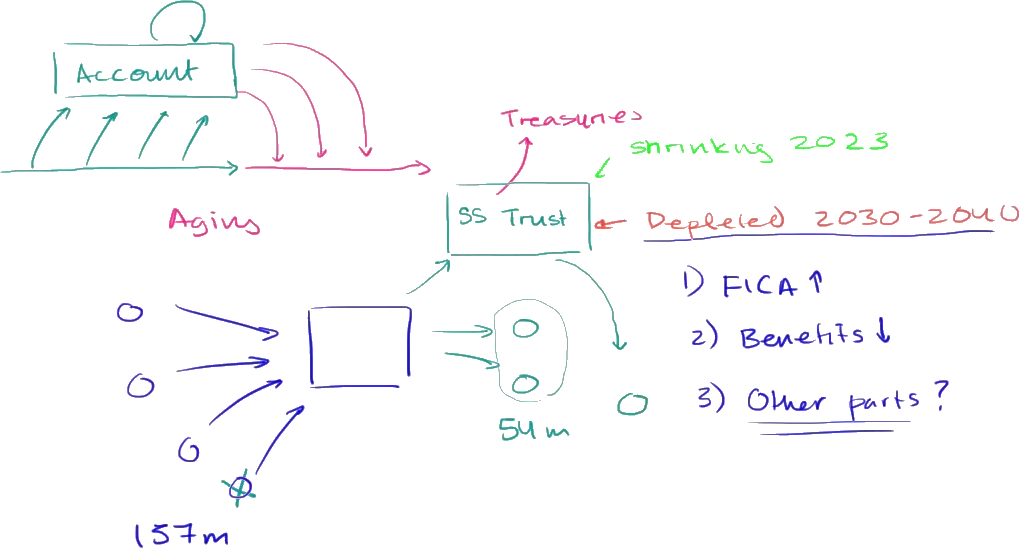 Account
Treasuries
shrinking 2023
SS Trust
Aging
Depleted 2030-2040
1) FICA ↑
2) Benefits ↓
3) Other parts?
54m
157m